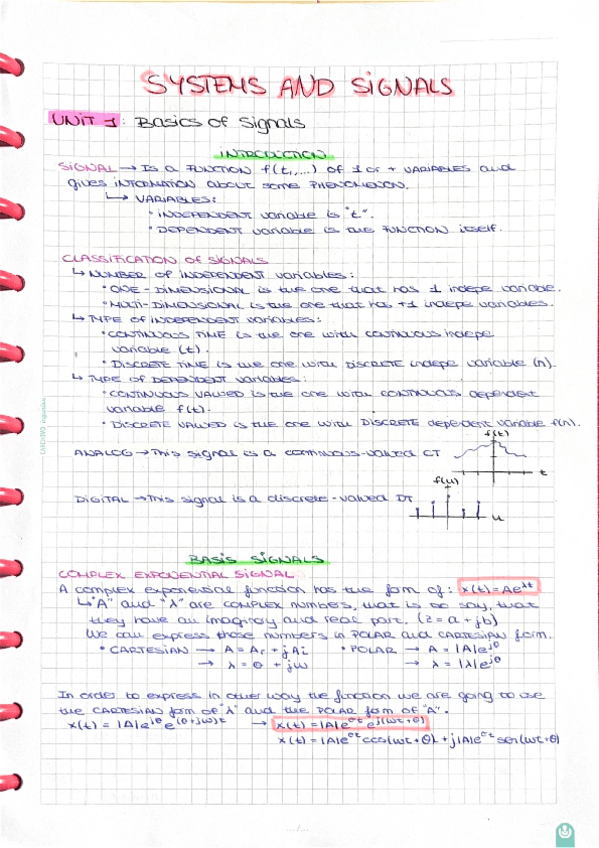 SYSTEMS AND SIGNALS
UNIT 1: Basics of Signals
INTRODUCTION
SIGNAL → Is a FUNCTION f(t,...) of 1 or + VARIABLES and
gives INFORMATION about some PHENOMENON.
↳ VARIABLES:
• INDEPENDENT variable is "t".
• DEPENDENT variable is the FUNCTION itself.
CLASSIFICATION of SIGNALS
↳ NUMBER of INDEPENDENT variables:
• ONE-DIMENSIONAL is the one that has 1 indepe variable.
• MULTI-DIMENSIONAL is the one that has +1 indepe variables.
↳ TYPE of INDEPENDENT variables:
• CONTINUOUS TIME is the one with CONTINUOUS indepe
variable (t).
• DISCRETE TIME is the one with DISCRETE indepe variable (n).
↳ TYPE of DEPENDENT variables:
• CONTINUOUS VALUED is the one with CONTINUOUS dependent
variable f(t).
• DISCRETE VALUED is the one with DISCRETE dependent variable f(n).
f(t)
ANALOG → This signal is a continuous-valued CT
t
f(n)
DIGITAL → This signal is a discrete-valued DT
n
BASIS SIGNALS
COMPLEX EXPONENTIAL SIGNAL
A complex exponential function has the form of: x(t)=Ae^λt
↳ "A" and "λ" are COMPLEX numbers, that is to say, that
they have an imaginary and real part. (z=a+jb)
We can express those numbers in POLAR and CARTESIAN form.
• CARTESIAN → A = Ar + jAi • POLAR → A = |A|e^jθ
→ λ = σ + jω → λ = |λ|e^jθ
In order to express in other way the function we are going to use
the CARTESIAN form of "λ" and the POLAR form of "A".
x(t) = |A|e^jθ e^(σ+jω)t → x(t) = |A|e^σt e^j(ωt+θ)
x(t) = |A|e^σt cos(ωt+θ) + j|A|e^σt sen(ωt+θ)